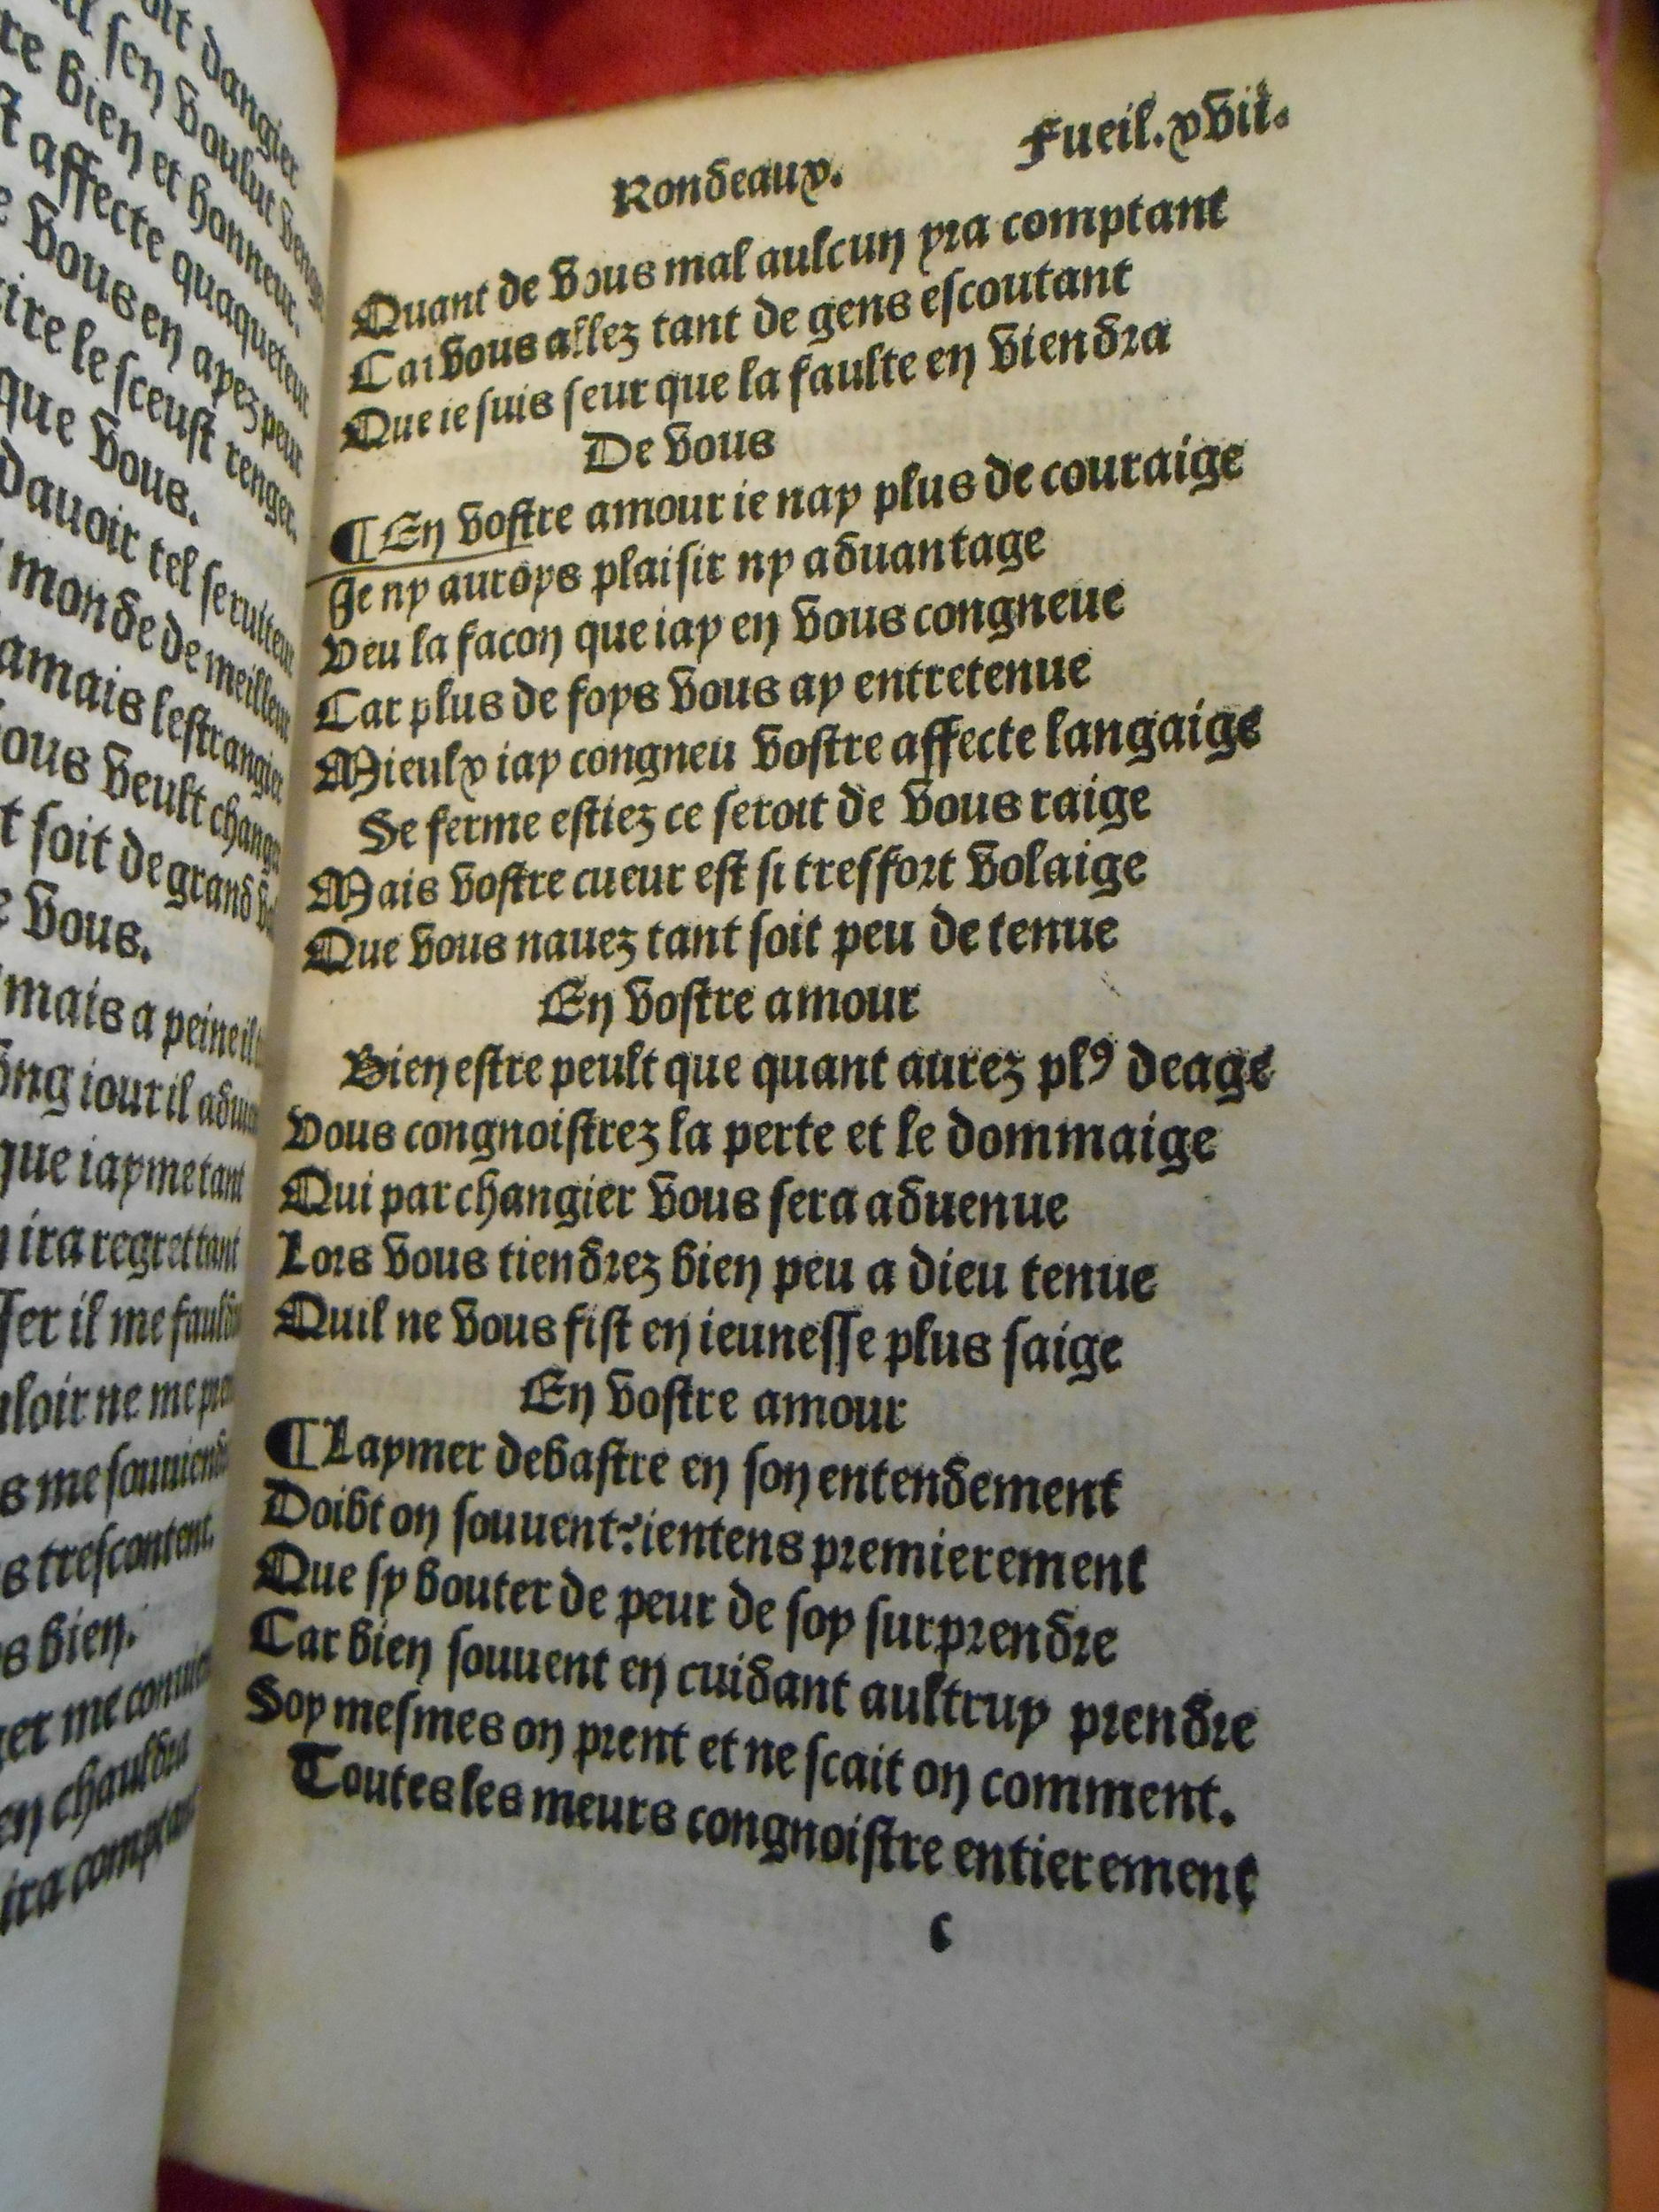 oit dangier
sen voulut
re bien et honneur.
affecte quaqueteur
vous en ayez peur
ire le sceust renger.
que vous.
dauoir tel seruiteur
monde de meilleur
amais lestrangier
vous veult
t soit de grand
vous.
mais a peine il
ung iour il
que iay me tant
ira regrettant
il me
loir ne me
s me
s trescontent.
s bien.
me
en chauldra
ira comptant
Rondeaux. Fueil. xvii.
Quant de vous mal aulcun yra comptant
Car vous allez tant de gens escoutant
Que ie suis seur que la faulte en viendra
De vous
¶ En vostre amour ie nay plus de couraige
Je ny auroys plaisir ny aduantage
Veu la facon que iay en vous congneue
Car plus de foys vous ay entretenue
Mieulx iay congneu vostre affecte langaige
Se ferme estiez ce seroit de vous raige
Mais vostre cueur est si tresfort volaige
Que vous nauez tant soit peu de tenue
En vostre amour
Bien estre peult que quant aurez plꝰ deage
Vous congnoistrez la perte et le dommaige
Qui par changier vous sera aduenue
Lors vous tiendrez bien peu a dieu tenue
Quil ne vous fist en ieunesse plus saige
En vostre amour
¶ Laymer debastre en son entendement
Doibt on souuent ⁊ ientens premierement
Que sy bouter de peur de soy surprendre
Car bien souuent en cuidant aultruy prendre
Soy mesmes on prent et ne scait on comment.
Toutes les meurs congnoistre entierement
c